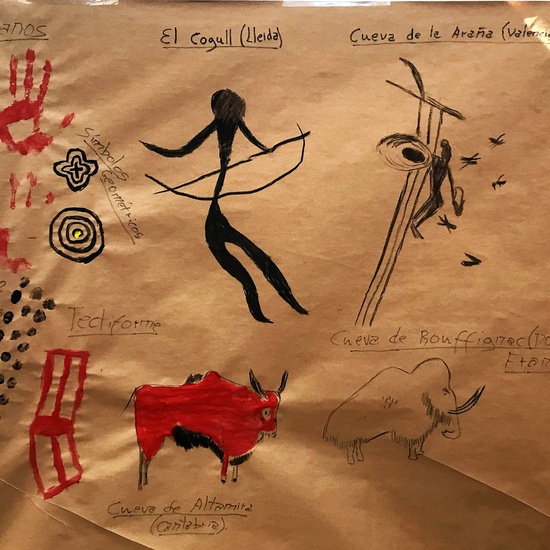 El Cogull (Lleida)
Cueva de la Araña (Valencia
Símbolos
Geométricos
Tectiforme
Cueva de Rouffignac
Cueva de Altamira
(Cantabria).